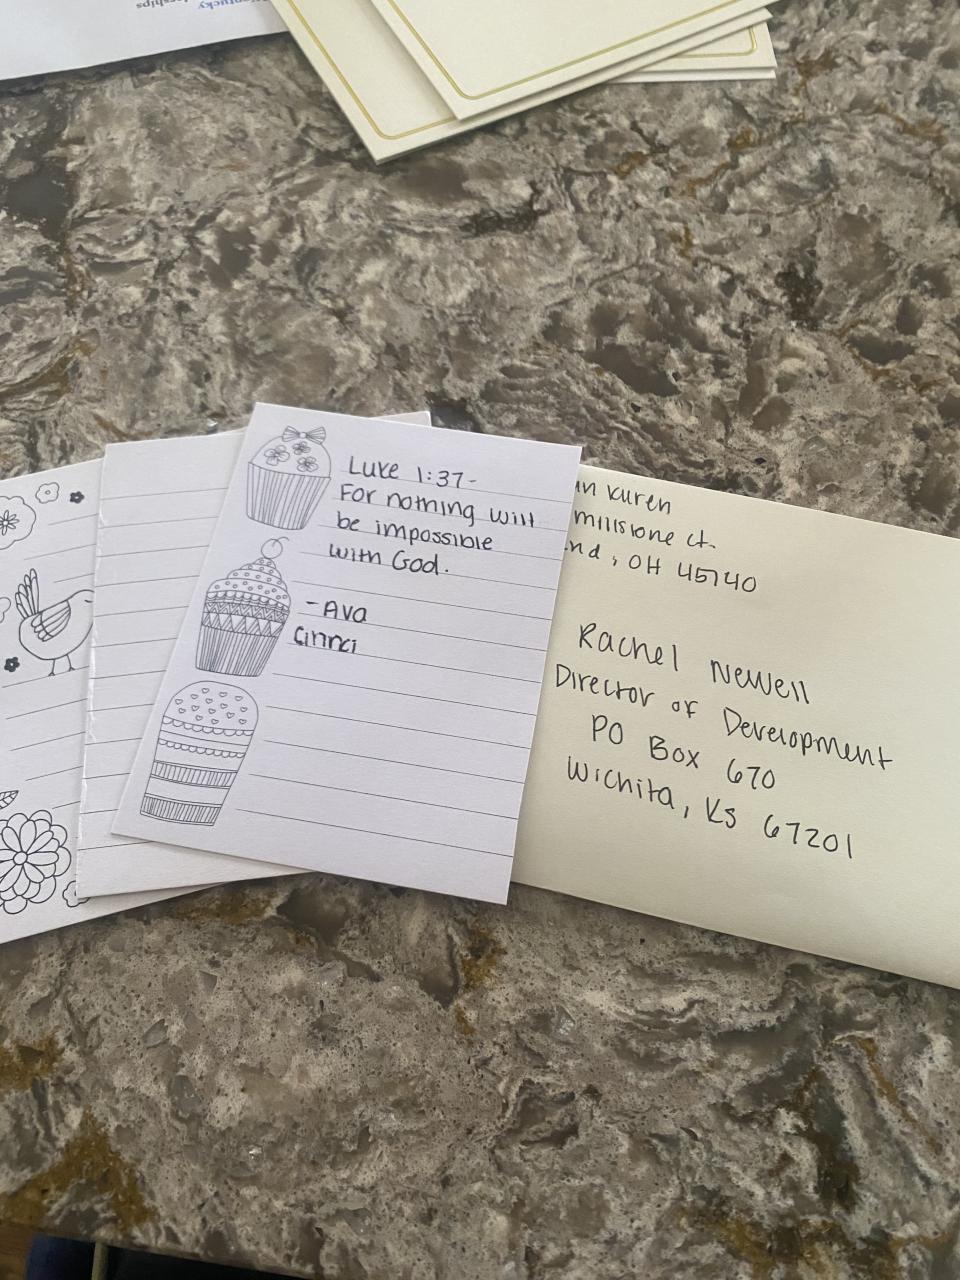 Luke 1:37-
For nothing will
be impossible
with God.
-Ava
Cinnci
Kuren
millstone ct.
, OH 45140
Rachel Newell
Director of Development
PO Box 670
Wichita, KS 67201